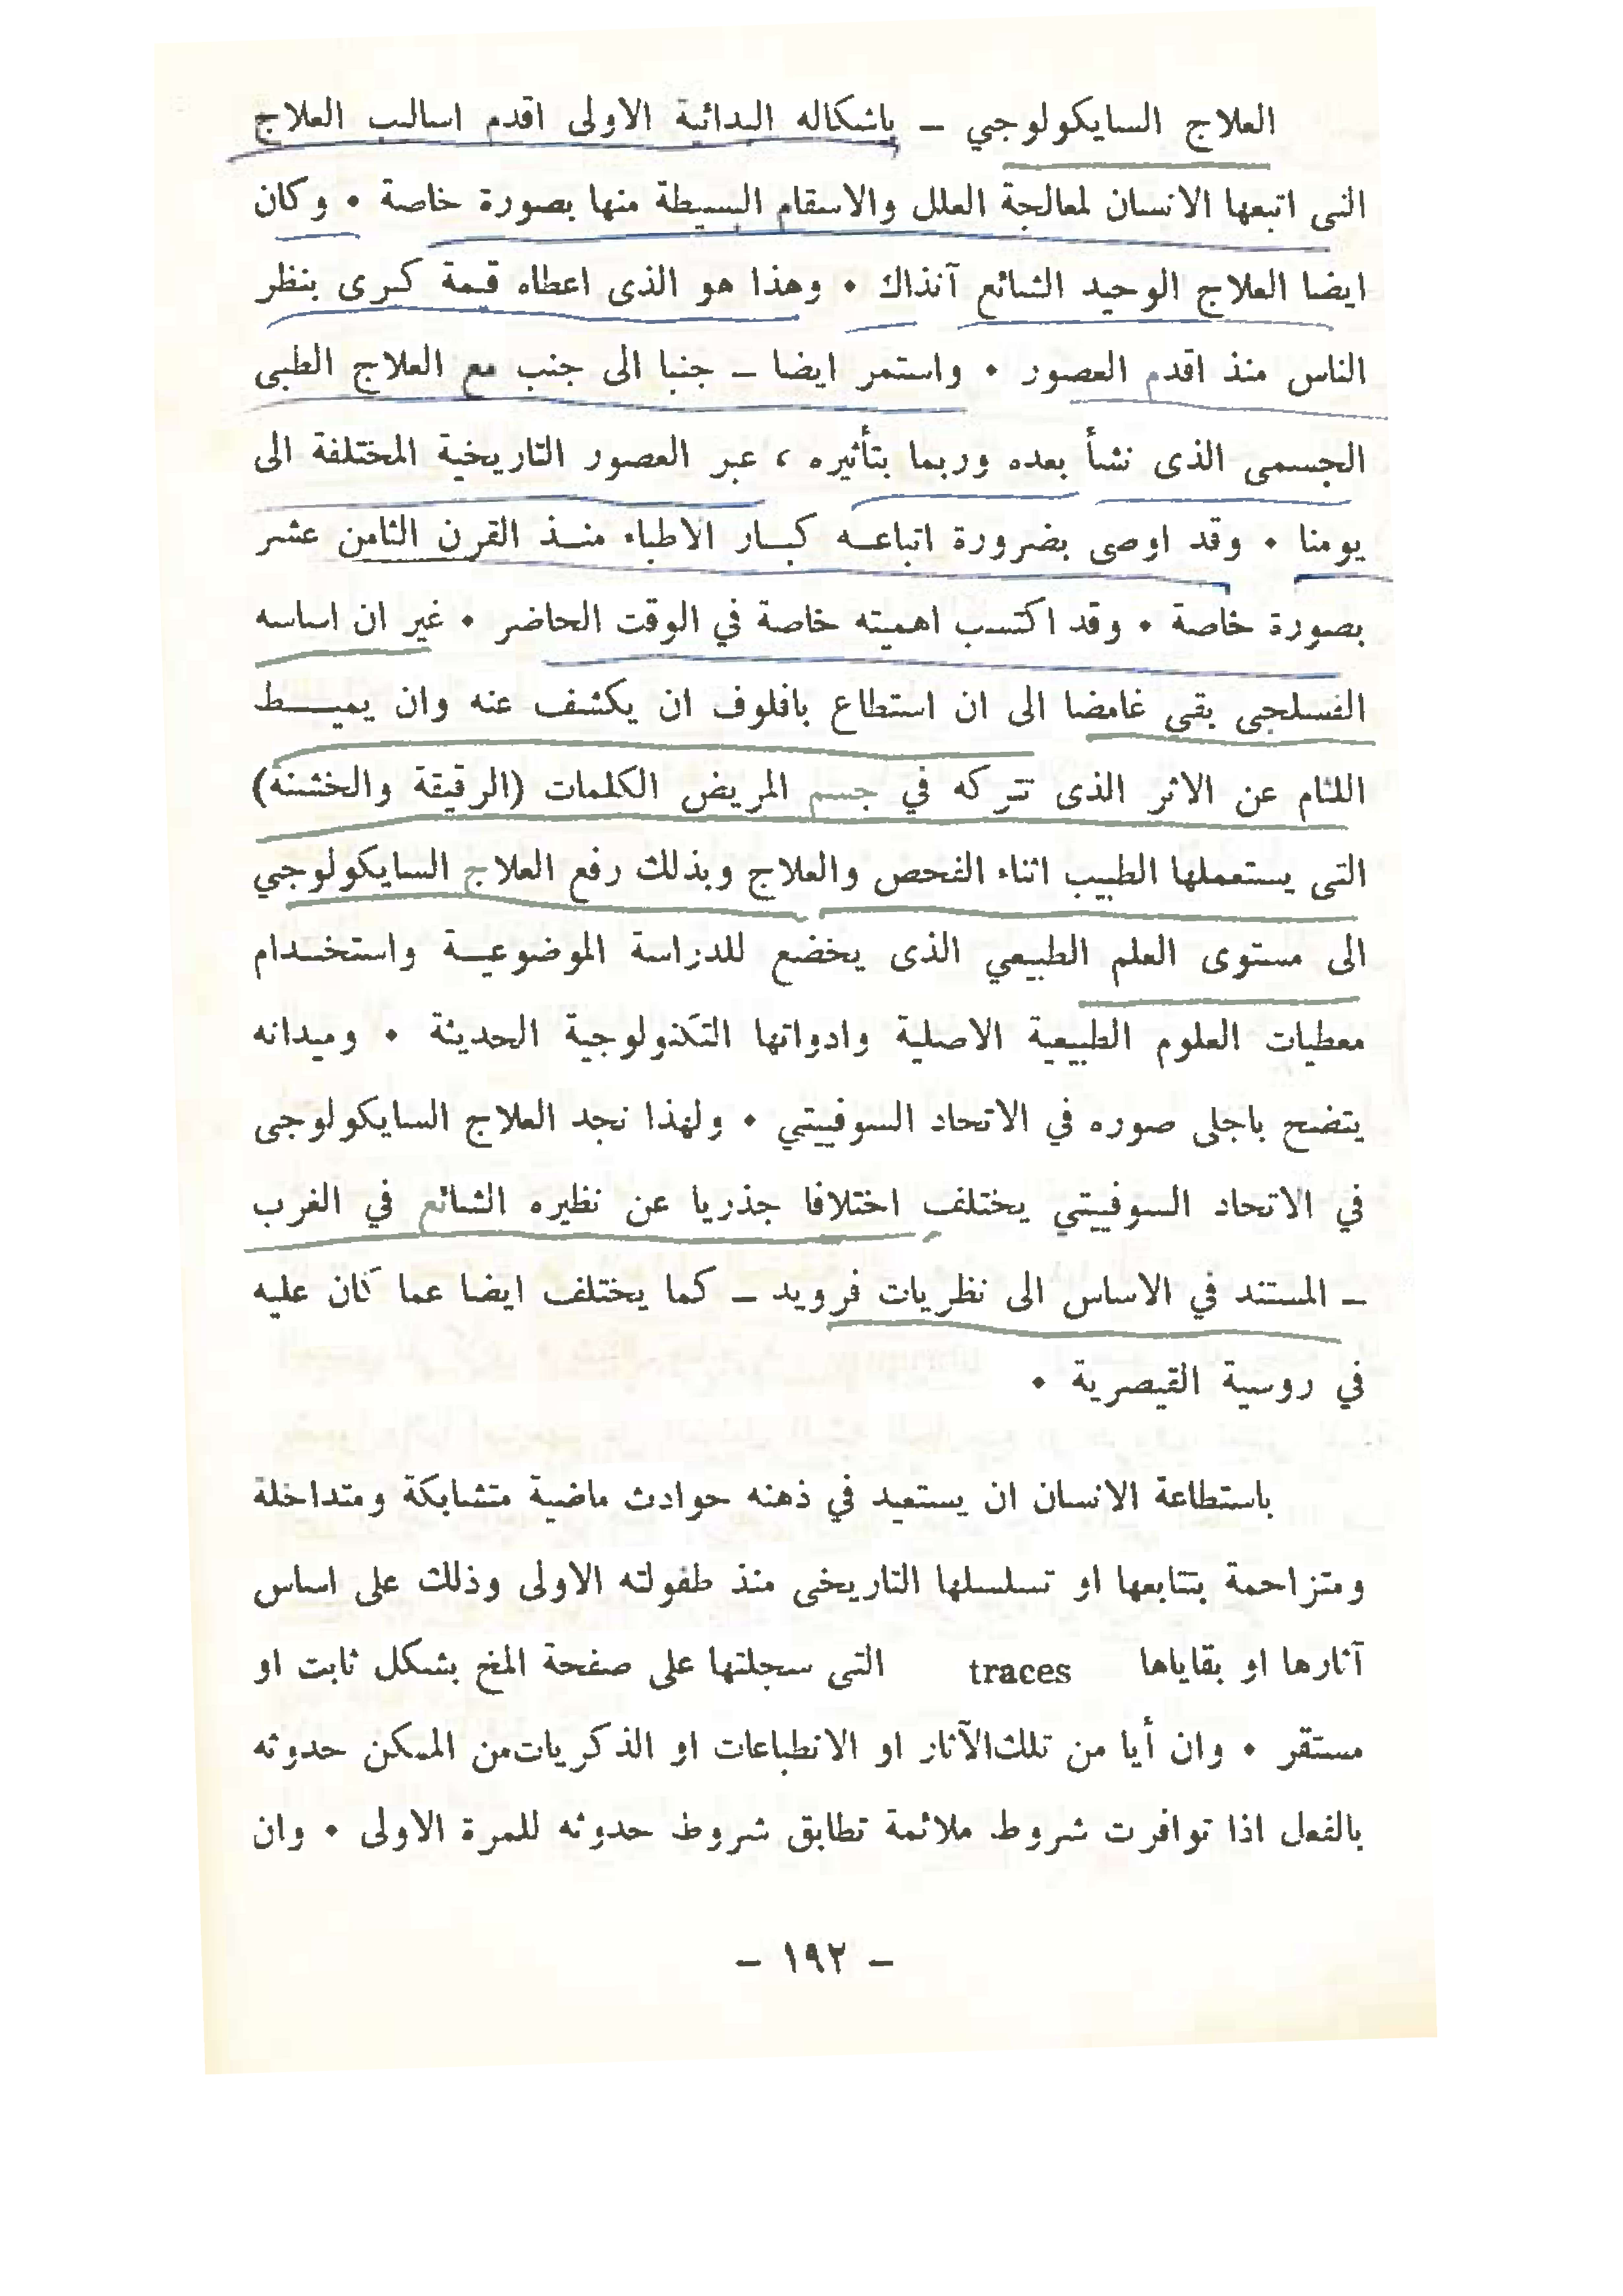 العلاج السايكولوجي – باشكاله البدائية الاولى اقدم اساليب العلاج
التى اتبعها الانسان لمعالجة العلل والاسقام البسيطة منها بصورة خاصة • وكان
ايضا العلاج الوحيد الشائع آنذاك • وهذا هو الذى اعطاه قيمة كبرى بنظر
الناس منذ اقدم العصور • واستمر ايضا – جنبا الى جنب مع العلاج الطبى
الجسمى الذى نشأ بعده وربما بتأثيره ، عبر العصور التاريخية المختلفة الى
يومنا • وقد اوصى بضرورة اتباعه كبار الاطباء منذ القرن الثامن عشر
بصورة خاصة • وقد اكتسب اهميته خاصة في الوقت الحاضر • غير ان اساسه
الفسلجى بقى غامضا الى ان استطاع بافلوف ان يكشف عنه وان يميط
اللثام عن الاثر الذى تتركه في جسم المريض الكلمات (الرقيقة والخشنة)
التى يستعملها الطبيب اثناء الفحص والعلاج وبذلك رفع العلاج السايكولوجي
الى مستوى العلم الطبيعي الذى يخضع للدراسة الموضوعية واستخدام
معطيات العلوم الطبيعية الاصلية وادواتها التكنولوجية الحديثة • وميدانه
يتضح باجلى صوره في الاتحاد السوفييتي • ولهذا نجد العلاج السايكولوجى
في الاتحاد السوفييتي يختلف اختلافا جذريا عن نظيره الشائع في الغرب
– المستند في الاساس الى نظريات فرويد – كما يختلف ايضا عما كان عليه
في روسية القيصرية •
باستطاعة الانسان ان يستعيد في ذهنه حوادث ماضية متشابكة ومتداخلة
ومتزاحمة بتتابعها او تسلسلها التاريخى منذ طفولته الاولى وذلك على اساس
آثارها او بقاياها traces التى سجلتها على صفحة المخ بشكل ثابت او
مستقر • وان أيا من تلك الآثار او الانطباعات او الذكريات من الممكن حدوثه
بالفعل اذا توافرت شروط ملائمة تطابق شروط حدوثه للمرة الاولى • وان
– ١٩٢ –